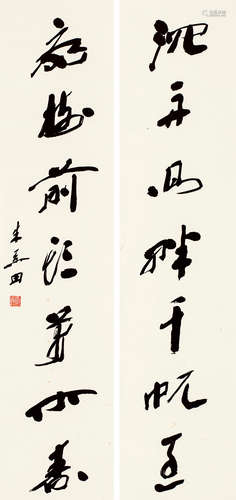 沉舟側畔千帆過
病樹前頭萬木春
朱關田